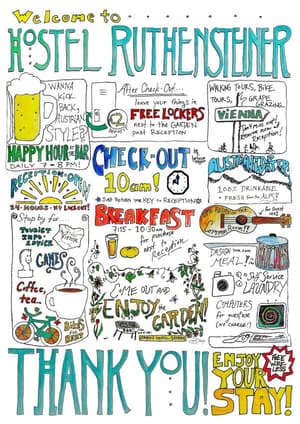 Welcome to
HOSTEL RUTHENSTEINER
WANNA
KICK
BACK,
AUSTRIAN
STYLE?
HAPPY HOUR @ BAR
DAILY 7-8PM!
After Check-Out...
leave your things in
FREE LOCKERS
next to the GARDEN
past RECEPTION
€2
WALKING TOURS, BIKE
TOURS, & GRAPE
GRAZING...
VIENNA
RECEPTION OPEN
24-HOURS - NO LOCKOUT!
Stop by for...
TOURIST
INFO &
ADVICE
GAMES
Coffee,
tea..
BIKES
CHECK-OUT is
10am!
Just Return the KEY to RECEPTION
BREAKFAST
7:15 - 10:30am
for purchase
next to
Reception
100% DRINKABLE
COME OUT AND
ENJOY
the GARDEN!
MEAL!
Self Service
LAUNDRY
COMPUTERS
for guest use
(no charge!)
THANK YOU!
ENJOY
YOUR
STAY!
FREE
WIRE
LESS